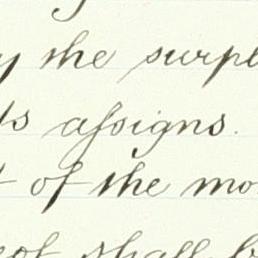 y the surpl
ts aſsigns.
t of the mo
eof shall b